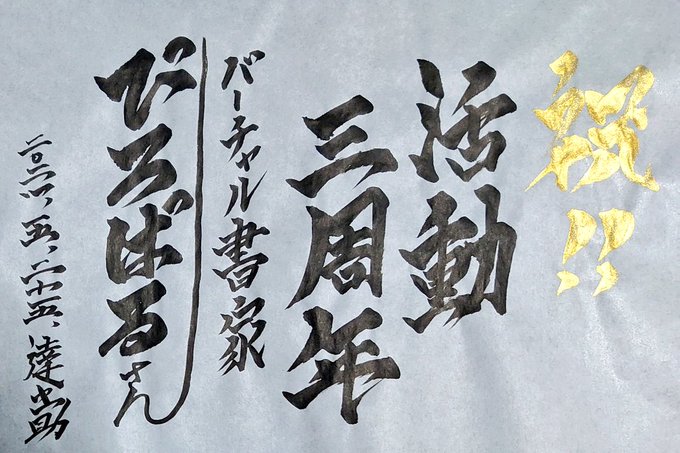 祝!!
活動
三周年
バーチャル書家
びろばるさん
二〇二六、五、二十五、達出助